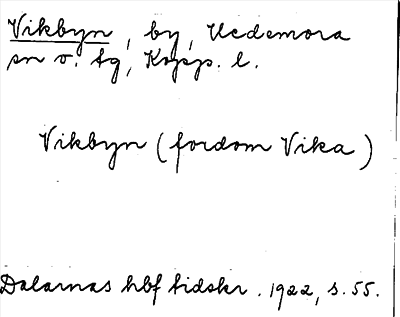 Vikbyn, by, Hedemora
sn o. tg, Kopp. l.
Vikbyn (fordom Vika)
Dalarnas hbf tidskr. 1922, s. 55.